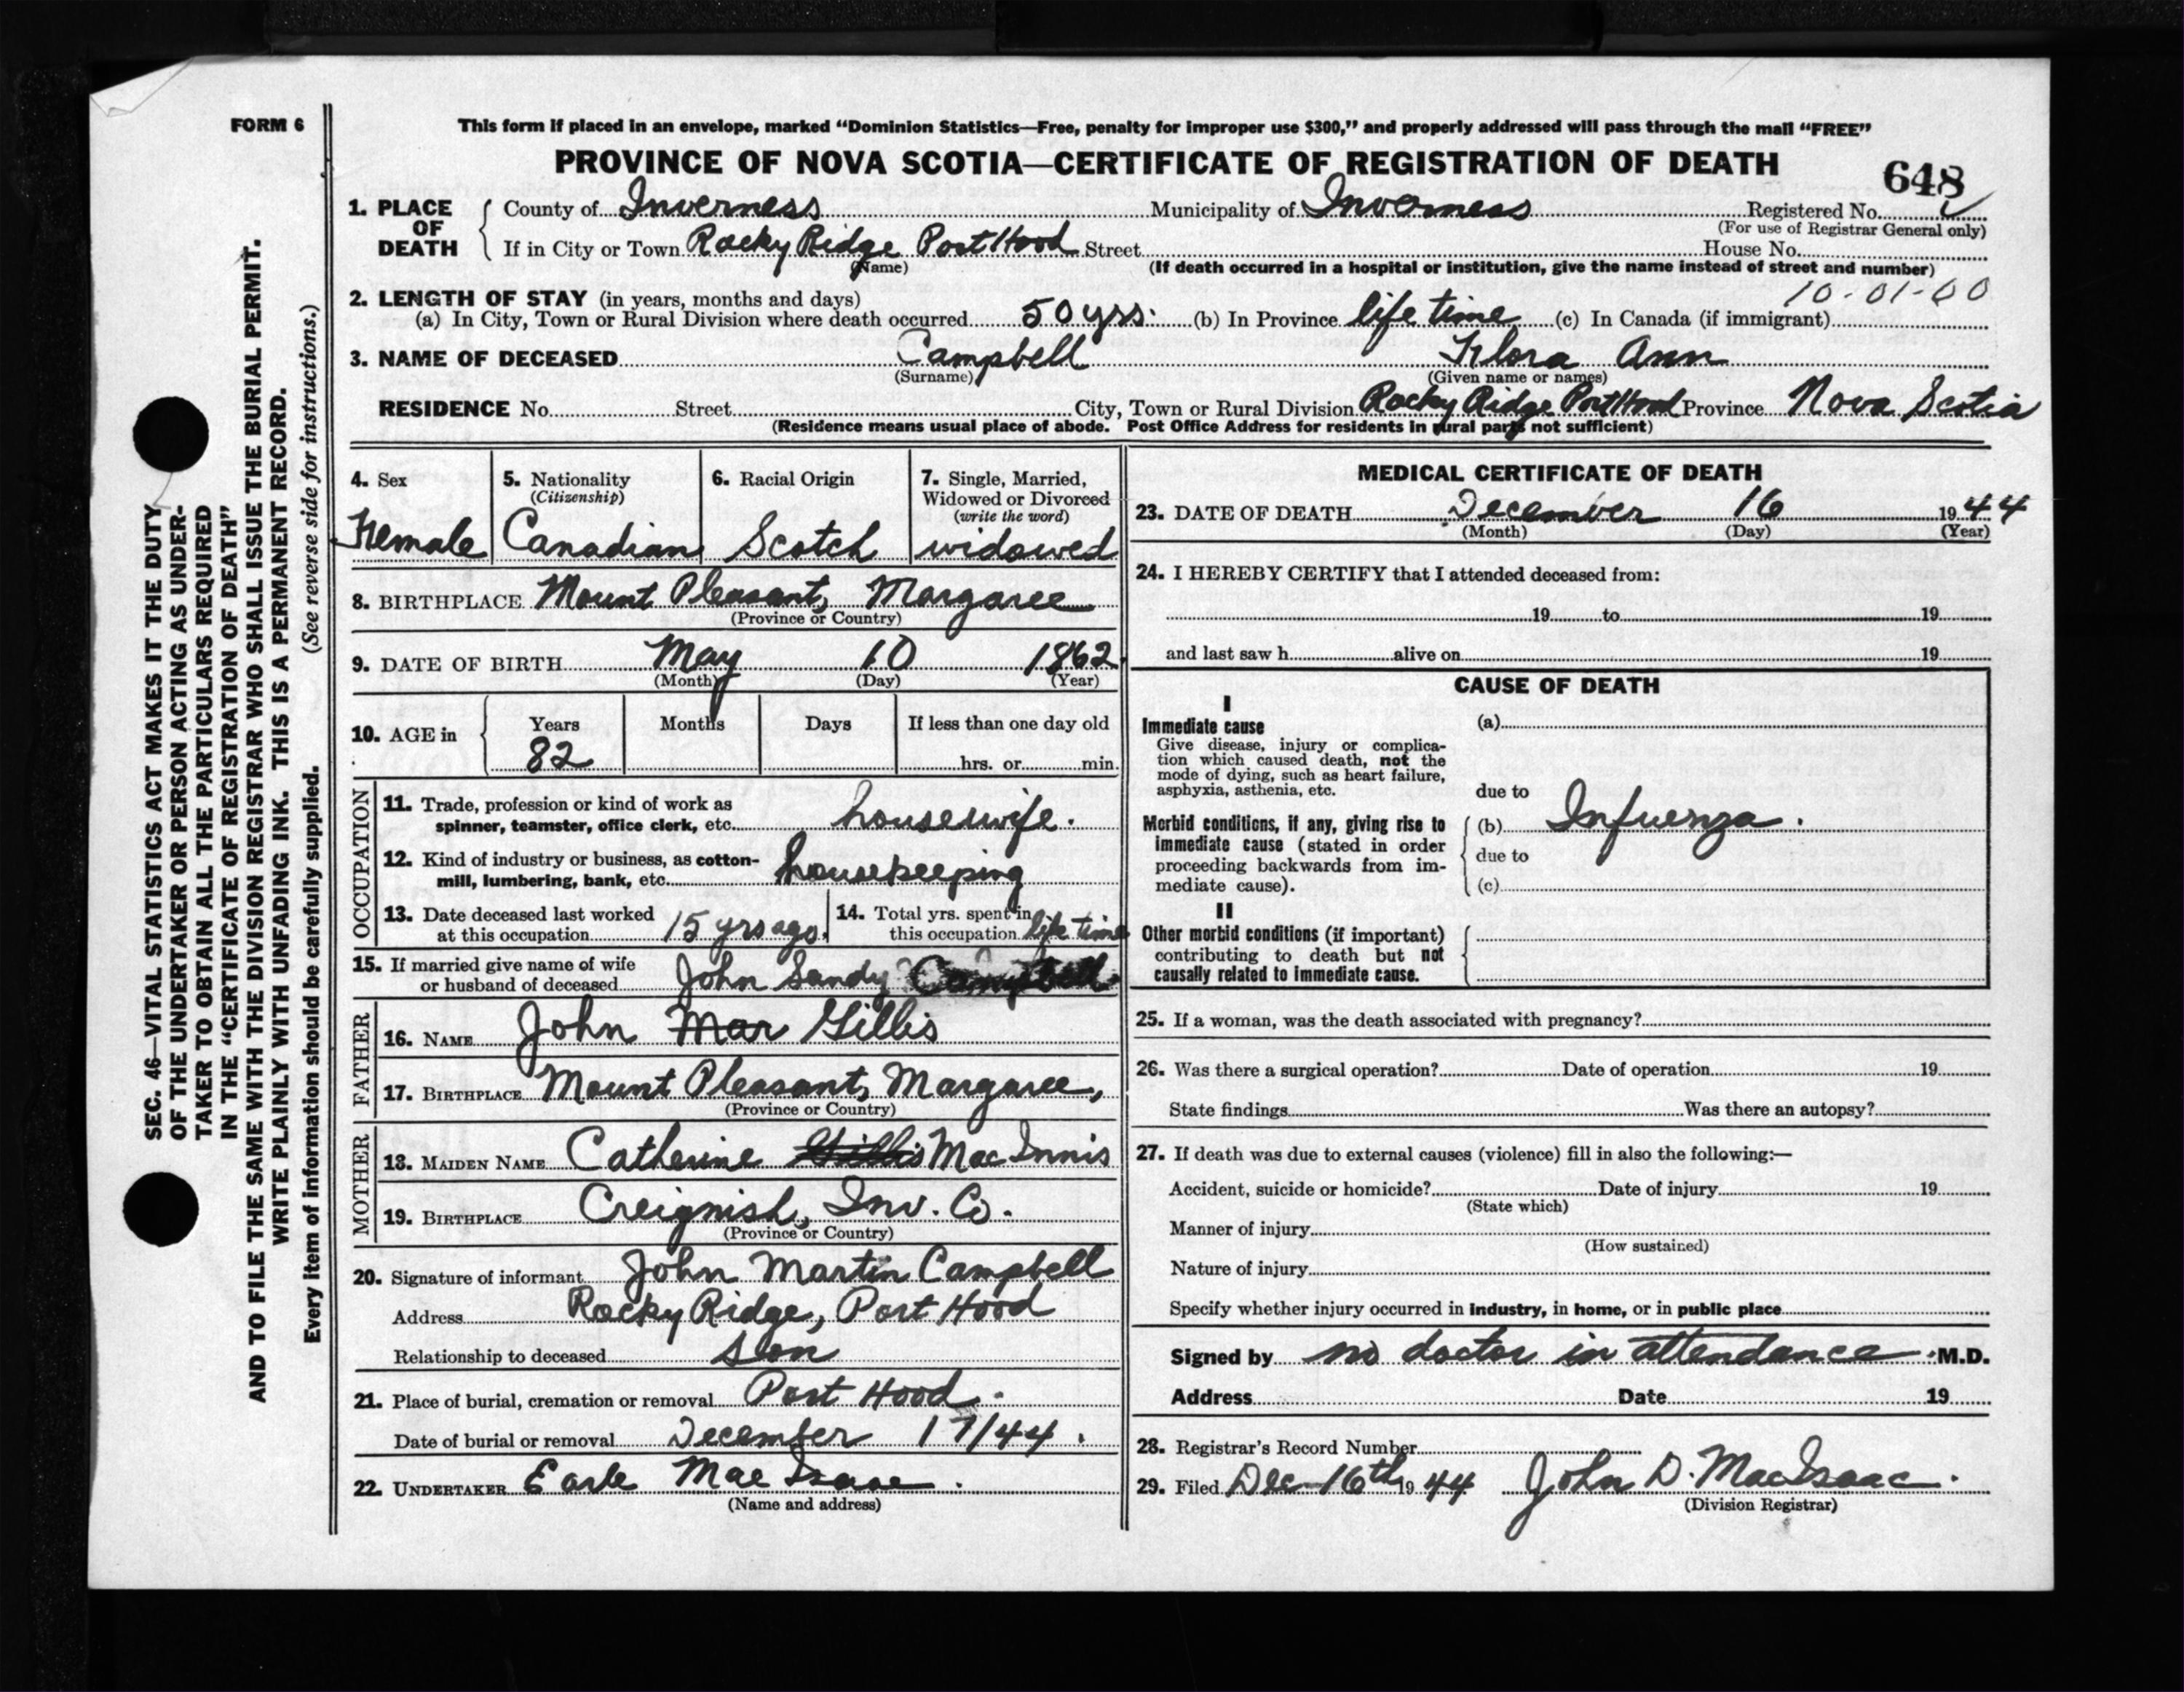 FORM 6
This form if placed in an envelope, marked “Dominion Statistics—Free, penalty for improper use $300,” and properly addressed will pass through the mail “FREE”
PROVINCE OF NOVA SCOTIA—CERTIFICATE OF REGISTRATION OF DEATH
648
1. PLACE OF DEATH
County of Inverness Municipality of Inverness Registered No.
(For use of Registrar General only)
If in City or Town Rocky Ridge Port Hood Street House No.
(Name)
(If death occurred in a hospital or institution, give the name instead of street and number)
2. LENGTH OF STAY (in years, months and days)
10-01-00
(a) In City, Town or Rural Division where death occurred 50 yrs. (b) In Province life time (c) In Canada (if immigrant)
3. NAME OF DECEASED Campbell Flora Ann
(Surname) (Given name or names)
RESIDENCE No. Street City, Town or Rural Division Rocky Ridge Port Hood Province Nova Scotia
(Residence means usual place of abode. Post Office Address for residents in rural parts not sufficient)
4. Sex
Female
5. Nationality
(Citizenship)
Canadian
6. Racial Origin
Scotch
7. Single, Married,
Widowed or Divorced
(write the word)
widowed
8. BIRTHPLACE Mount Pleasant, Margaree
(Province or Country)
9. DATE OF BIRTH May 10 1862
(Month) (Day) (Year)
10. AGE in Years Months Days If less than one day old
82 hrs. or min.
OCCUPATION
11. Trade, profession or kind of work as
spinner, teamster, office clerk, etc. housewife.
12. Kind of industry or business, as cotton-
mill, lumbering, bank, etc. housekeeping
13. Date deceased last worked
at this occupation 15 yrs ago.
14. Total yrs. spent in
this occupation life time
15. If married give name of wife
or husband of deceased John Sandy Campbell
FATHER
16. NAME John Mar Gillis
17. BIRTHPLACE Mount Pleasant, Margaree,
(Province or Country)
MOTHER
18. MAIDEN NAME Catherine Gillis MacInnis
19. BIRTHPLACE Creignish, Inv. Co.
(Province or Country)
20. Signature of informant John Martin Campbell
Address Rocky Ridge, Port Hood
Relationship to deceased Son
21. Place of burial, cremation or removal Port Hood.
Date of burial or removal December 17/44.
22. UNDERTAKER Earle MacIsaac.
(Name and address)
MEDICAL CERTIFICATE OF DEATH
23. DATE OF DEATH December 16 1944
(Month) (Day) (Year)
24. I HEREBY CERTIFY that I attended deceased from:
19 to 19
and last saw h alive on 19
CAUSE OF DEATH
I
Immediate cause (a)
Give disease, injury or complica-
tion which caused death, not the
mode of dying, such as heart failure,
asphyxia, asthenia, etc. due to
Morbid conditions, if any, giving rise to (b) Infuenza.
immediate cause (stated in order
proceeding backwards from im- due to
mediate cause). (c)
II
Other morbid conditions (if important)
contributing to death but not
causally related to immediate cause.
25. If a woman, was the death associated with pregnancy?
26. Was there a surgical operation? Date of operation 19
State findings Was there an autopsy?
27. If death was due to external causes (violence) fill in also the following:—
Accident, suicide or homicide? Date of injury 19
(State which)
Manner of injury
(How sustained)
Nature of injury
Specify whether injury occurred in industry, in home, or in public place
Signed by no doctor in attendance M.D.
Address Date 19
28. Registrar's Record Number
29. Filed Dec 16th 1944 John D. MacIsaac.
(Division Registrar)
SEC. 46—VITAL STATISTICS ACT MAKES IT THE DUTY
OF THE UNDERTAKER OR PERSON ACTING AS UNDER-
TAKER TO OBTAIN ALL THE PARTICULARS REQUIRED
IN THE “CERTIFICATE OF REGISTRATION OF DEATH”
AND TO FILE THE SAME WITH THE DIVISION REGISTRAR WHO SHALL ISSUE THE BURIAL PERMIT.
WRITE PLAINLY WITH UNFADING INK. THIS IS A PERMANENT RECORD.
Every item of information should be carefully supplied. (See reverse side for instructions.)